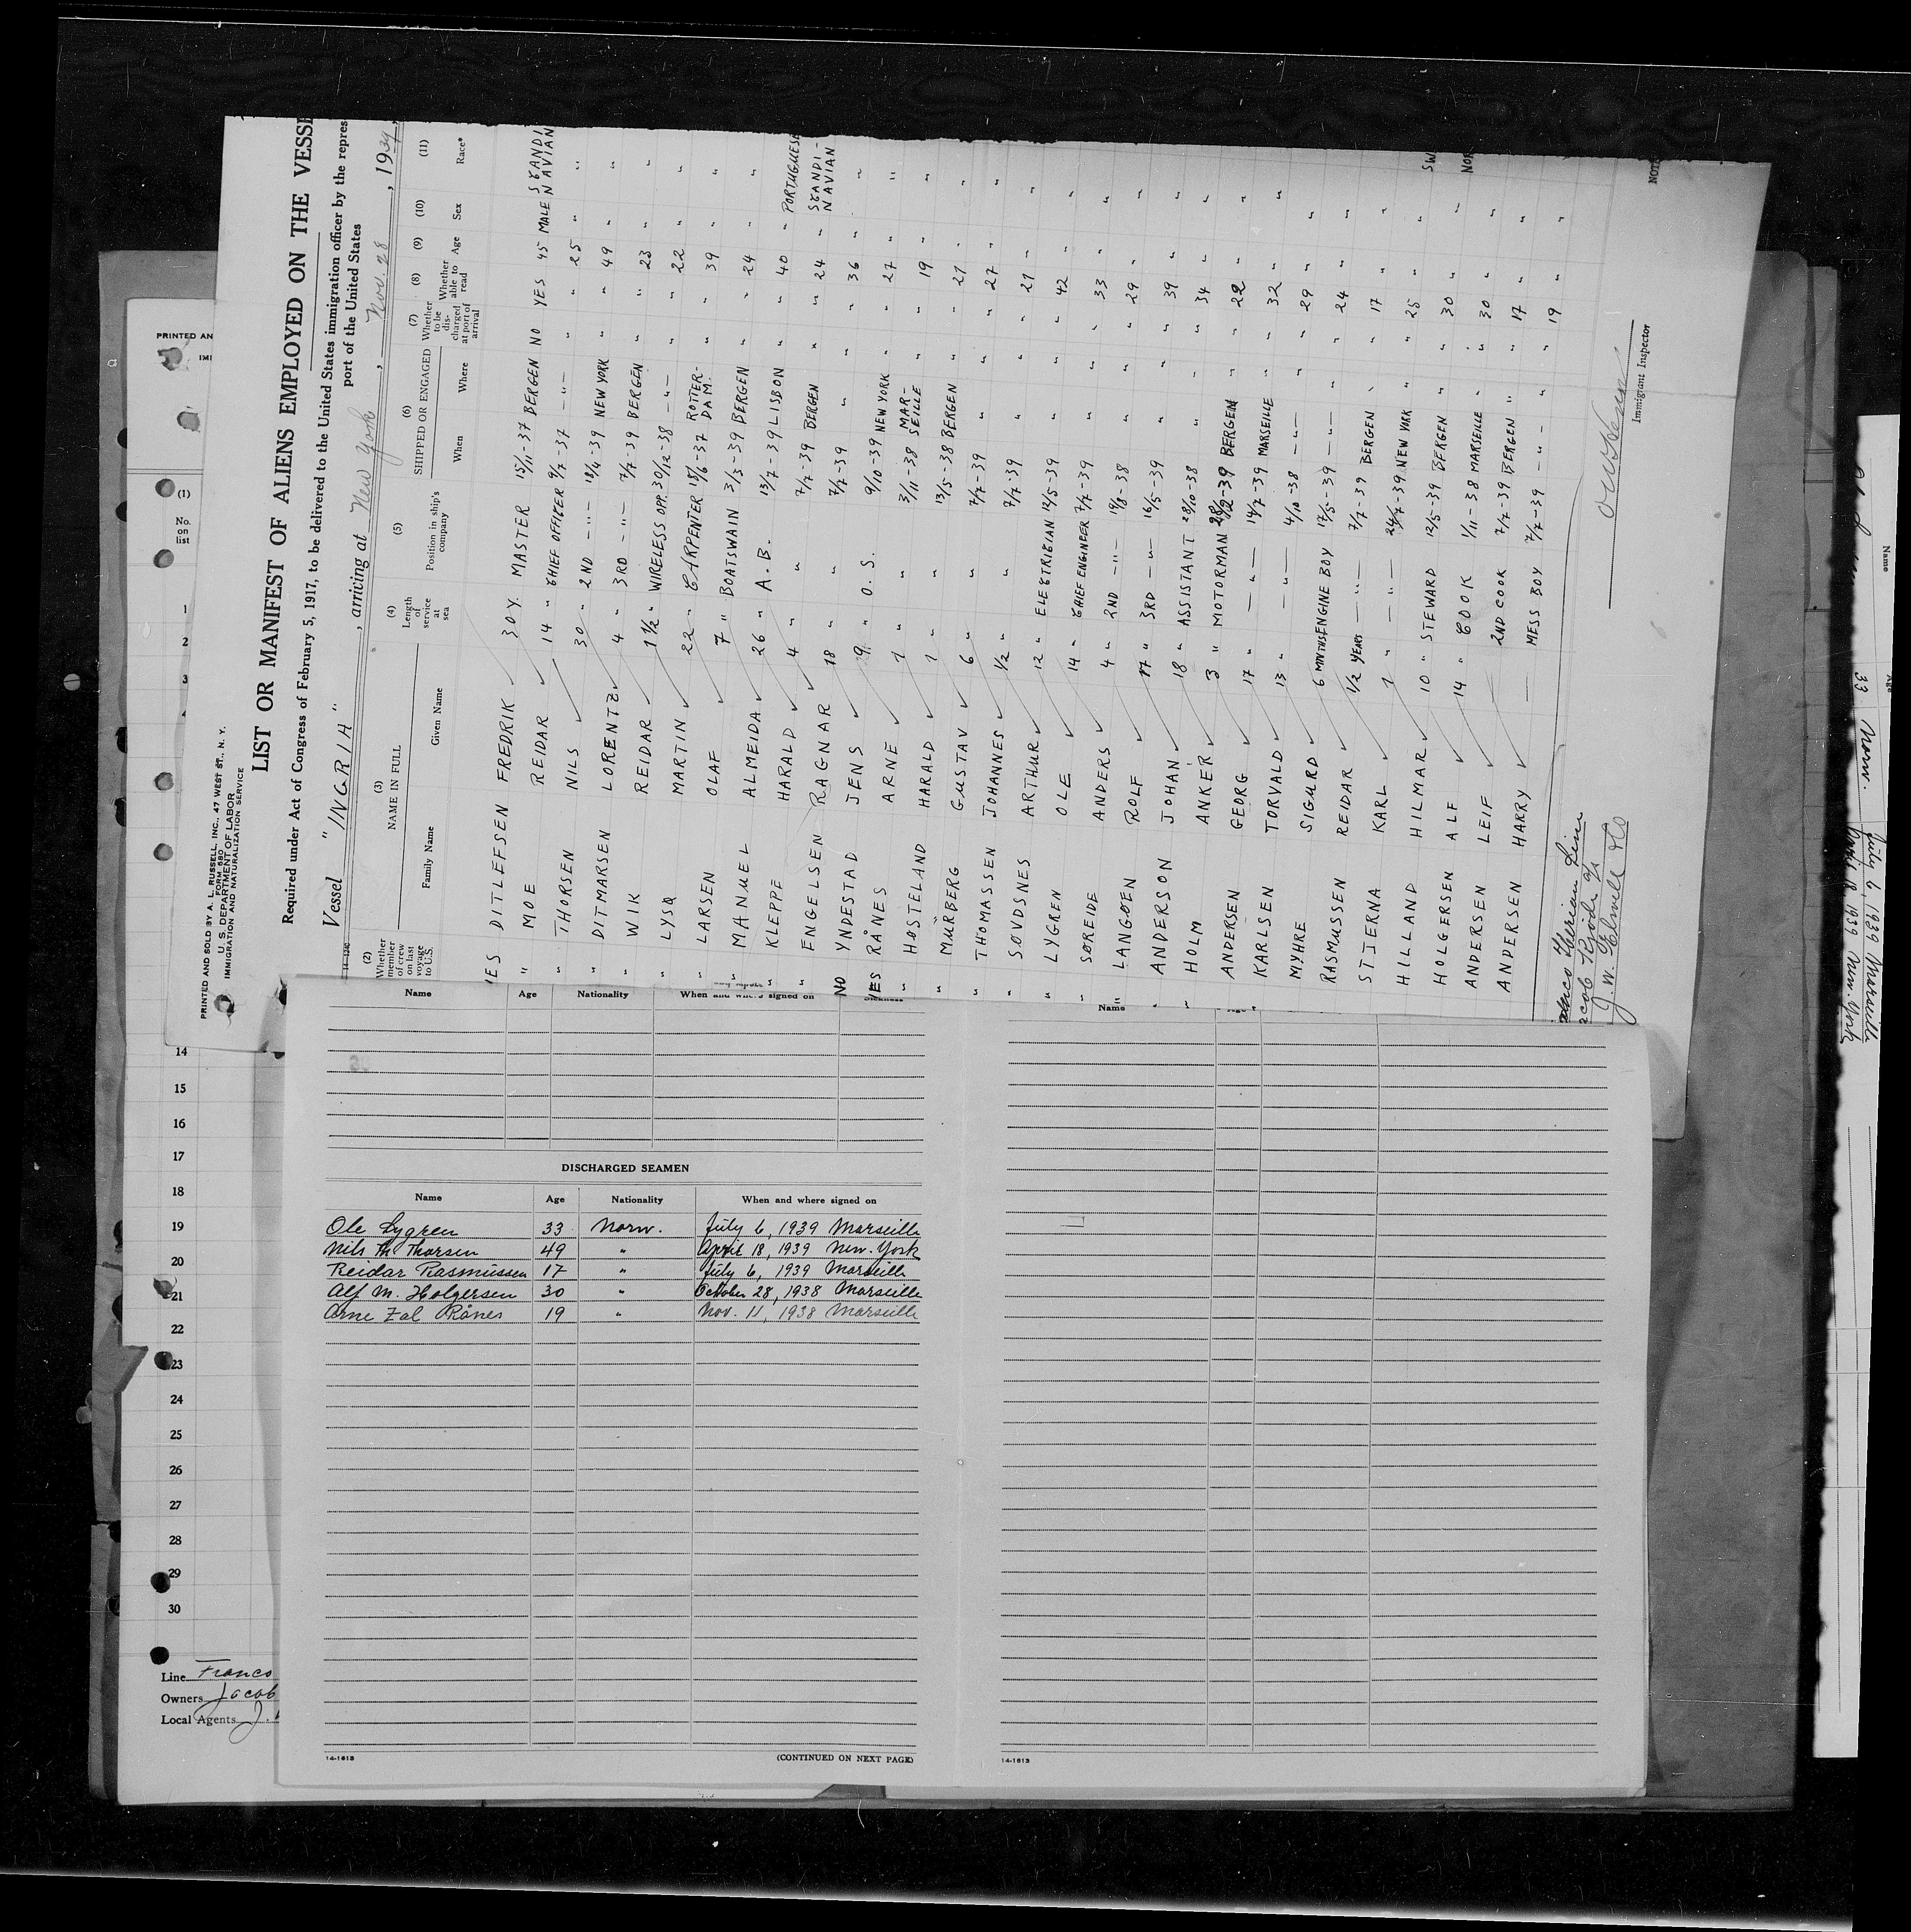 PRINTED AND SOLD BY A. L. RUSSELL, INC., 47 WEST ST., N. Y.
FORM 680
U. S. DEPARTMENT OF LABOR
IMMIGRATION AND NATURALIZATION SERVICE
LIST OR MANIFEST OF ALIENS EMPLOYED ON THE VESSE
Required under Act of Congress of February 5, 1917, to be delivered to the United States immigration officer by the repres
port of the United States
Vessel "INGRIA", arriving at New York, Nov. 28, 1939,
(2) Whether member of crew on last voyage to U.S. (3) NAME IN FULL Family Name Given Name (4) Length of service at sea (5) Position in ship's company (6) SHIPPED OR ENGAGED When Where (7) Whether to be discharged at port of arrival (8) Whether able to read (9) Age (10) Sex (11) Race*
YES DITLEFSEN FREDRIK 30 Y. MASTER 15/11-37 BERGEN NO YES 45 MALE SCANDINAVIAN
" MOE REIDAR 14 " CHIEF OFFICER 9/7-37 -"- " " 25 " "
" THORSEN NILS 30 " 2ND -"- 18/4-39 NEW YORK " " 49 " "
" DITMARSEN LORENTZ 4 " 3RD -"- 7/7-39 BERGEN " " 23 " "
" WIK REIDAR 1 1/2 " WIRELESS OP. 30/12-38 -"- " " 22 " "
" LYSØ MARTIN 22 " CARPENTER 18/6-37 ROTTERDAM. " " 39 " "
" LARSEN OLAF 7 " BOATSWAIN 3/3-39 BERGEN " " 24 " "
" MANUEL ALMEIDA 26 " A.B. 13/7-39 LISBON " " 40 " PORTUGUESE
" KLEPPE HARALD 4 " " 7/7-39 BERGEN " " 24 " SCANDINAVIAN
" ENGELSEN RAGNAR 18 " " 7/7-39 " " " 36 " "
NO YNDESTAD JENS 9 " O.S. 9/10-39 NEW YORK " " 27 " "
YES RÅNES ARNE 1 " " 3/11-38 MARSEILLE " " 19 " "
" HOSTELAND HARALD 1 " " 13/5-38 BERGEN " " 21 " "
" MURBERG GUSTAV 6 " " 7/7-39 " " " 27 " "
" THOMASSEN JOHANNES 1/2 " " 7/7-39 " " " 21 " "
" SØVDSNES ARTHUR 12 " ELECTRICIAN 12/5-39 " " " 42 " "
" LYGREN OLE 14 " CHIEF ENGINEER 7/7-39 " " " 33 " "
" SØREIDE ANDERS 4 " 2ND -"- 19/8-38 " " " 29 " "
" LANGØEN ROLF 17 " 3RD -"- 16/5-39 " " " 39 " "
" ANDERSON JOHAN 18 " ASSISTANT 28/10-38 " " " 34 " "
" HOLM ANKER 3 " MOTORMAN BERGEN " " 22 " "
" ANDERSEN GEORG 17 " -"- 14/7-39 MARSEILLE " " 32 " "
KARLSEN TORVALD 13 " -"- 4/10-38 -"- " " 29 " "
MYHRE SIGURD 6 MONTHS ENGINE BOY 17/5-39 -"- " " 24 " "
RASMUSSEN REIDAR 1/2 YEARS -"- 7/7-39 BERGEN " " 17 " "
STJERNA KARL 1 " -"- 24/7-39 NEW YORK " " 25 " SW
HILLAND HILMAR 10 " STEWARD 12/5-39 BERGEN " " 30 " NOR
HOLGERSEN ALF 14 " COOK 1/11-38 MARSEILLE " " 30 "
ANDERSEN LEIF — 2ND COOK 7/7-39 BERGEN " " 17 "
ANDERSEN HARRY — MESS BOY 7/7-39 -"- " " 19 "
Immigrant Inspector
NOTE
PRINTED AN
IMI
(1)
No. on list
1
2
3
14
15
16
17
18
19
20
21
22
23
24
25
26
27
28
29
30
Line Franco
Owners Jacob
Local Agents J.
Name Age Nationality When and where signed on
Name
DISCHARGED SEAMEN
Name Age Nationality When and where signed on
Ole Lygren 33 Norw. July 6, 1939 Marseille
Nils Th Thorsen 49 " April 18, 1939 New-York
Reidar Rasmussen 17 " July 6, 1939 Marseille
Alf M. Holgersen 30 " October 28, 1938 Marseille
Arne Zal Rånes 19 " Nov. 11, 1938 Marseille
14-1613
(CONTINUED ON NEXT PAGE)
14-1613
Name
Age
33 Norw. July 6, 1939 Marseille
1939 New-York